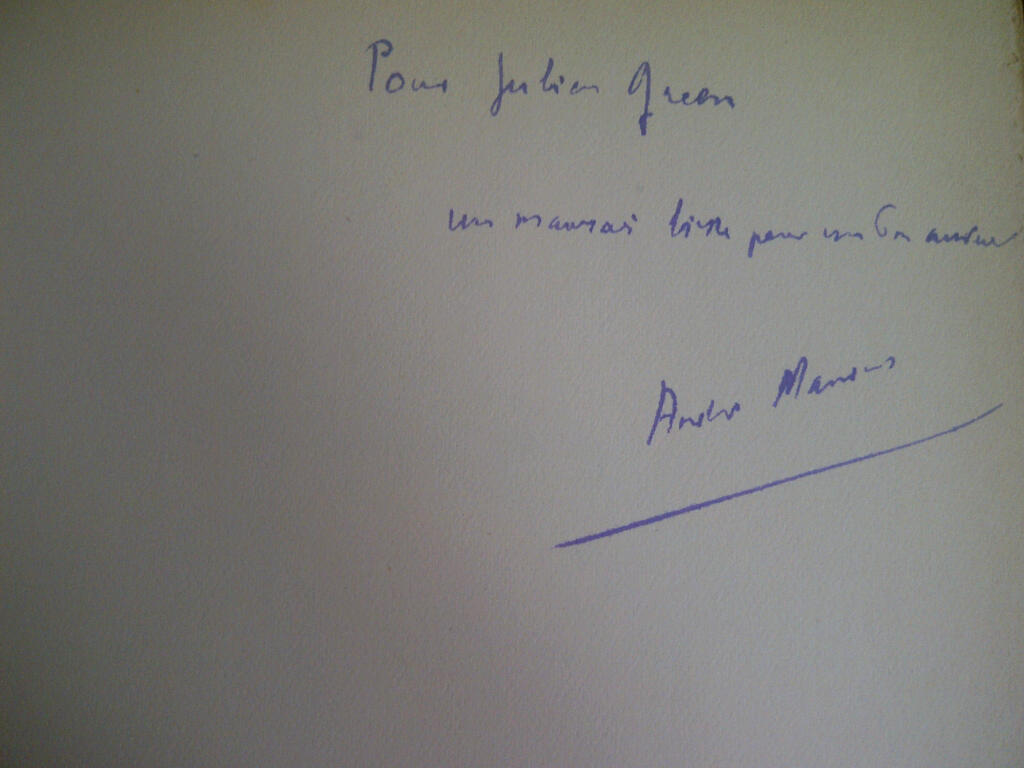 Pour Julien Green
un mauvais livre pour un bon auteur
André Maurois